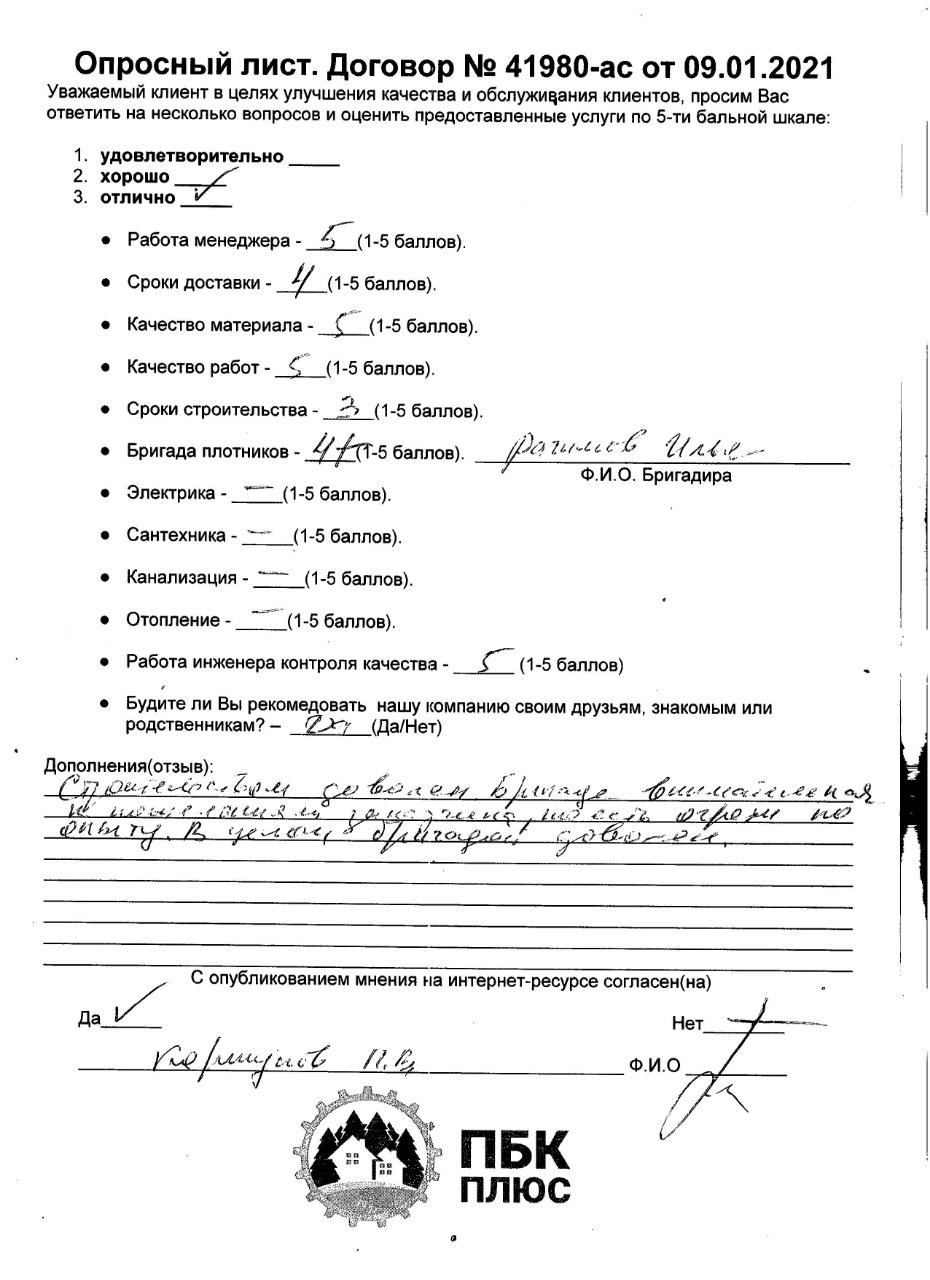 Опросный лист. Договор № 41980-ас от 09.01.2021
Уважаемый клиент в целях улучшения качества и обслуживания клиентов, просим Вас
ответить на несколько вопросов и оценить предоставленные услуги по 5-ти бальной шкале:
1. удовлетворительно ____
2. хорошо ____
3. отлично ____
• Работа менеджера - 5 (1-5 баллов).
• Сроки доставки - 4 (1-5 баллов).
• Качество материала - 5 (1-5 баллов).
• Качество работ - 5 (1-5 баллов).
• Сроки строительства - 3 (1-5 баллов).
• Бригада плотников - 4+ (1-5 баллов). Илья
Ф.И.О. Бригадира
• Электрика - — (1-5 баллов).
• Сантехника - — (1-5 баллов).
• Канализация - — (1-5 баллов).
• Отопление - — (1-5 баллов).
• Работа инженера контроля качества - 5 (1-5 баллов)
• Будите ли Вы рекомедовать нашу компанию своим друзьям, знакомым или
родственникам? – (Да/Нет)
Дополнения(отзыв):
Строительством доволен. Бригада внимательная
к пожеланиям заказчика, но есть огрехи по
опыту. В целом бригадой доволен.
С опубликованием мнения на интернет-ресурсе согласен(на)
Да
Нет
Ф.И.О
ПБК
ПЛЮС